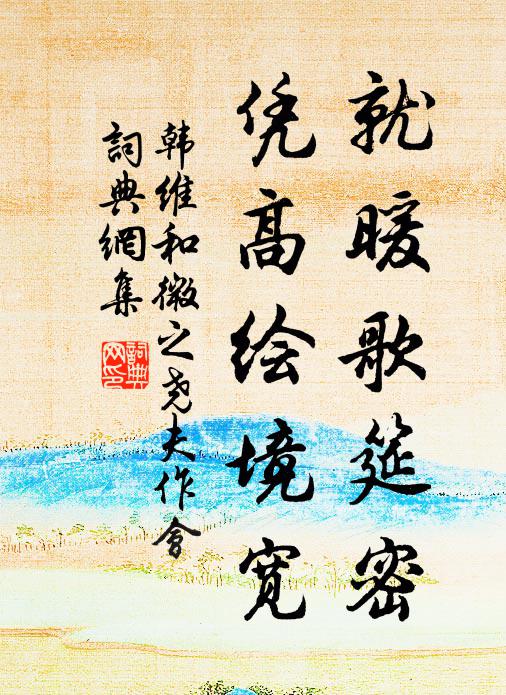 就暖歌筵密
凭高绘境宽
韩维和微之尧夫作会
詞典網集
詞典網印